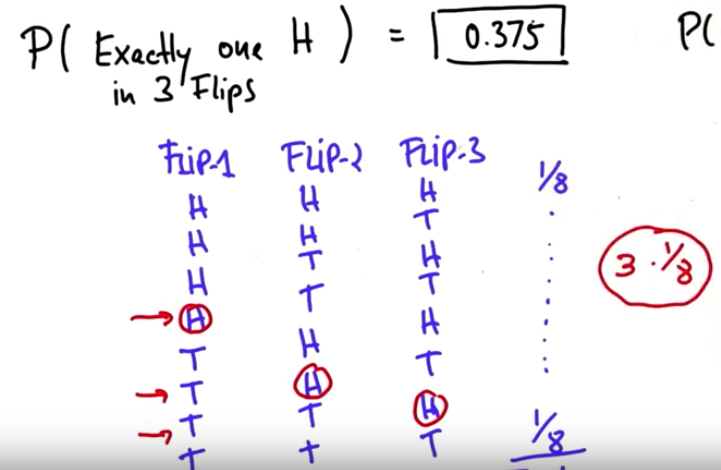 P( Exactly one H ) = 0.375 P(
in 3 Flips
Flip-1 Flip-2 Flip-3
1/8
H H H
H H T
H T H
H T T
T H H
T H T
T T H
T T T
3 · 1/8
1/8